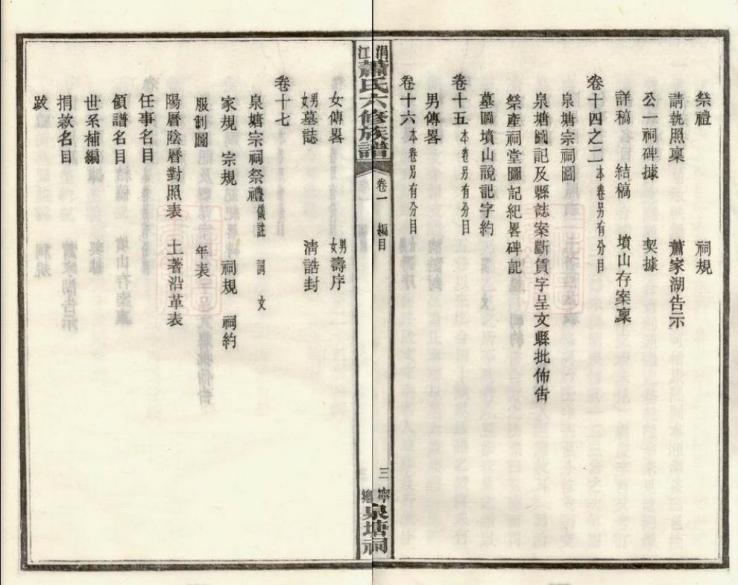 祭禮 祠規
請執照稟 蕭家湖告示
公一祠碑據 契據
詳稿 結稿 墳山存案稟
卷十四之二 本卷另有分目
泉塘宗祠圖
泉塘圖記及縣誌案斷賃字呈文縣批佈告
祭產祠堂圖記紀畧碑記
墓圖墳山說記字約
卷十五 本卷另有分目
男傳畧
卷十六 本卷另有分目
涓江蕭氏六修族譜 卷一 編目 三 寧鄉泉塘祠
女傳畧 男女壽序
男女墓誌 清誥封
卷十七
泉塘宗祠祭禮 儀註 詞文
家規 宗規 祠規 祠約
服制圖 年表
陽曆陰曆對照表 土著沿革表
任事名目
領譜名目
世系補編
捐款名目
跋